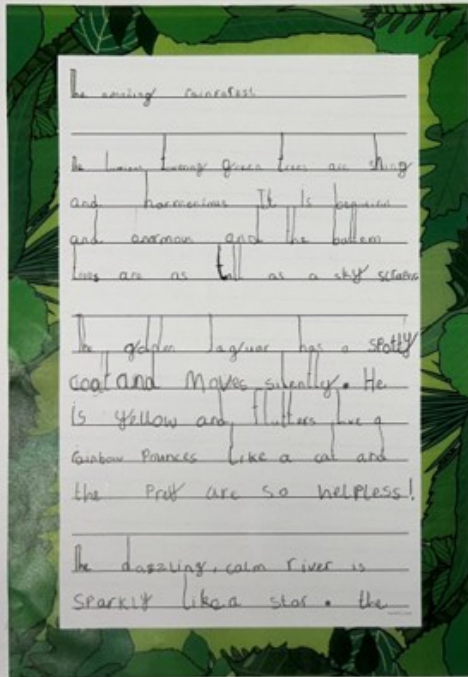 The amazing rainforest
The towering green trees are shing
and harmonious It Is
and anormous and the bottem
trees are as tall as a sky scraper
The golden Jaguar has a spotty
coat and moves silently. He
is yellow and flutters like a
rainbow Prounces like a cat and
the Prey are so helpless!
The dazzling, calm river is
sparkly like a star. the